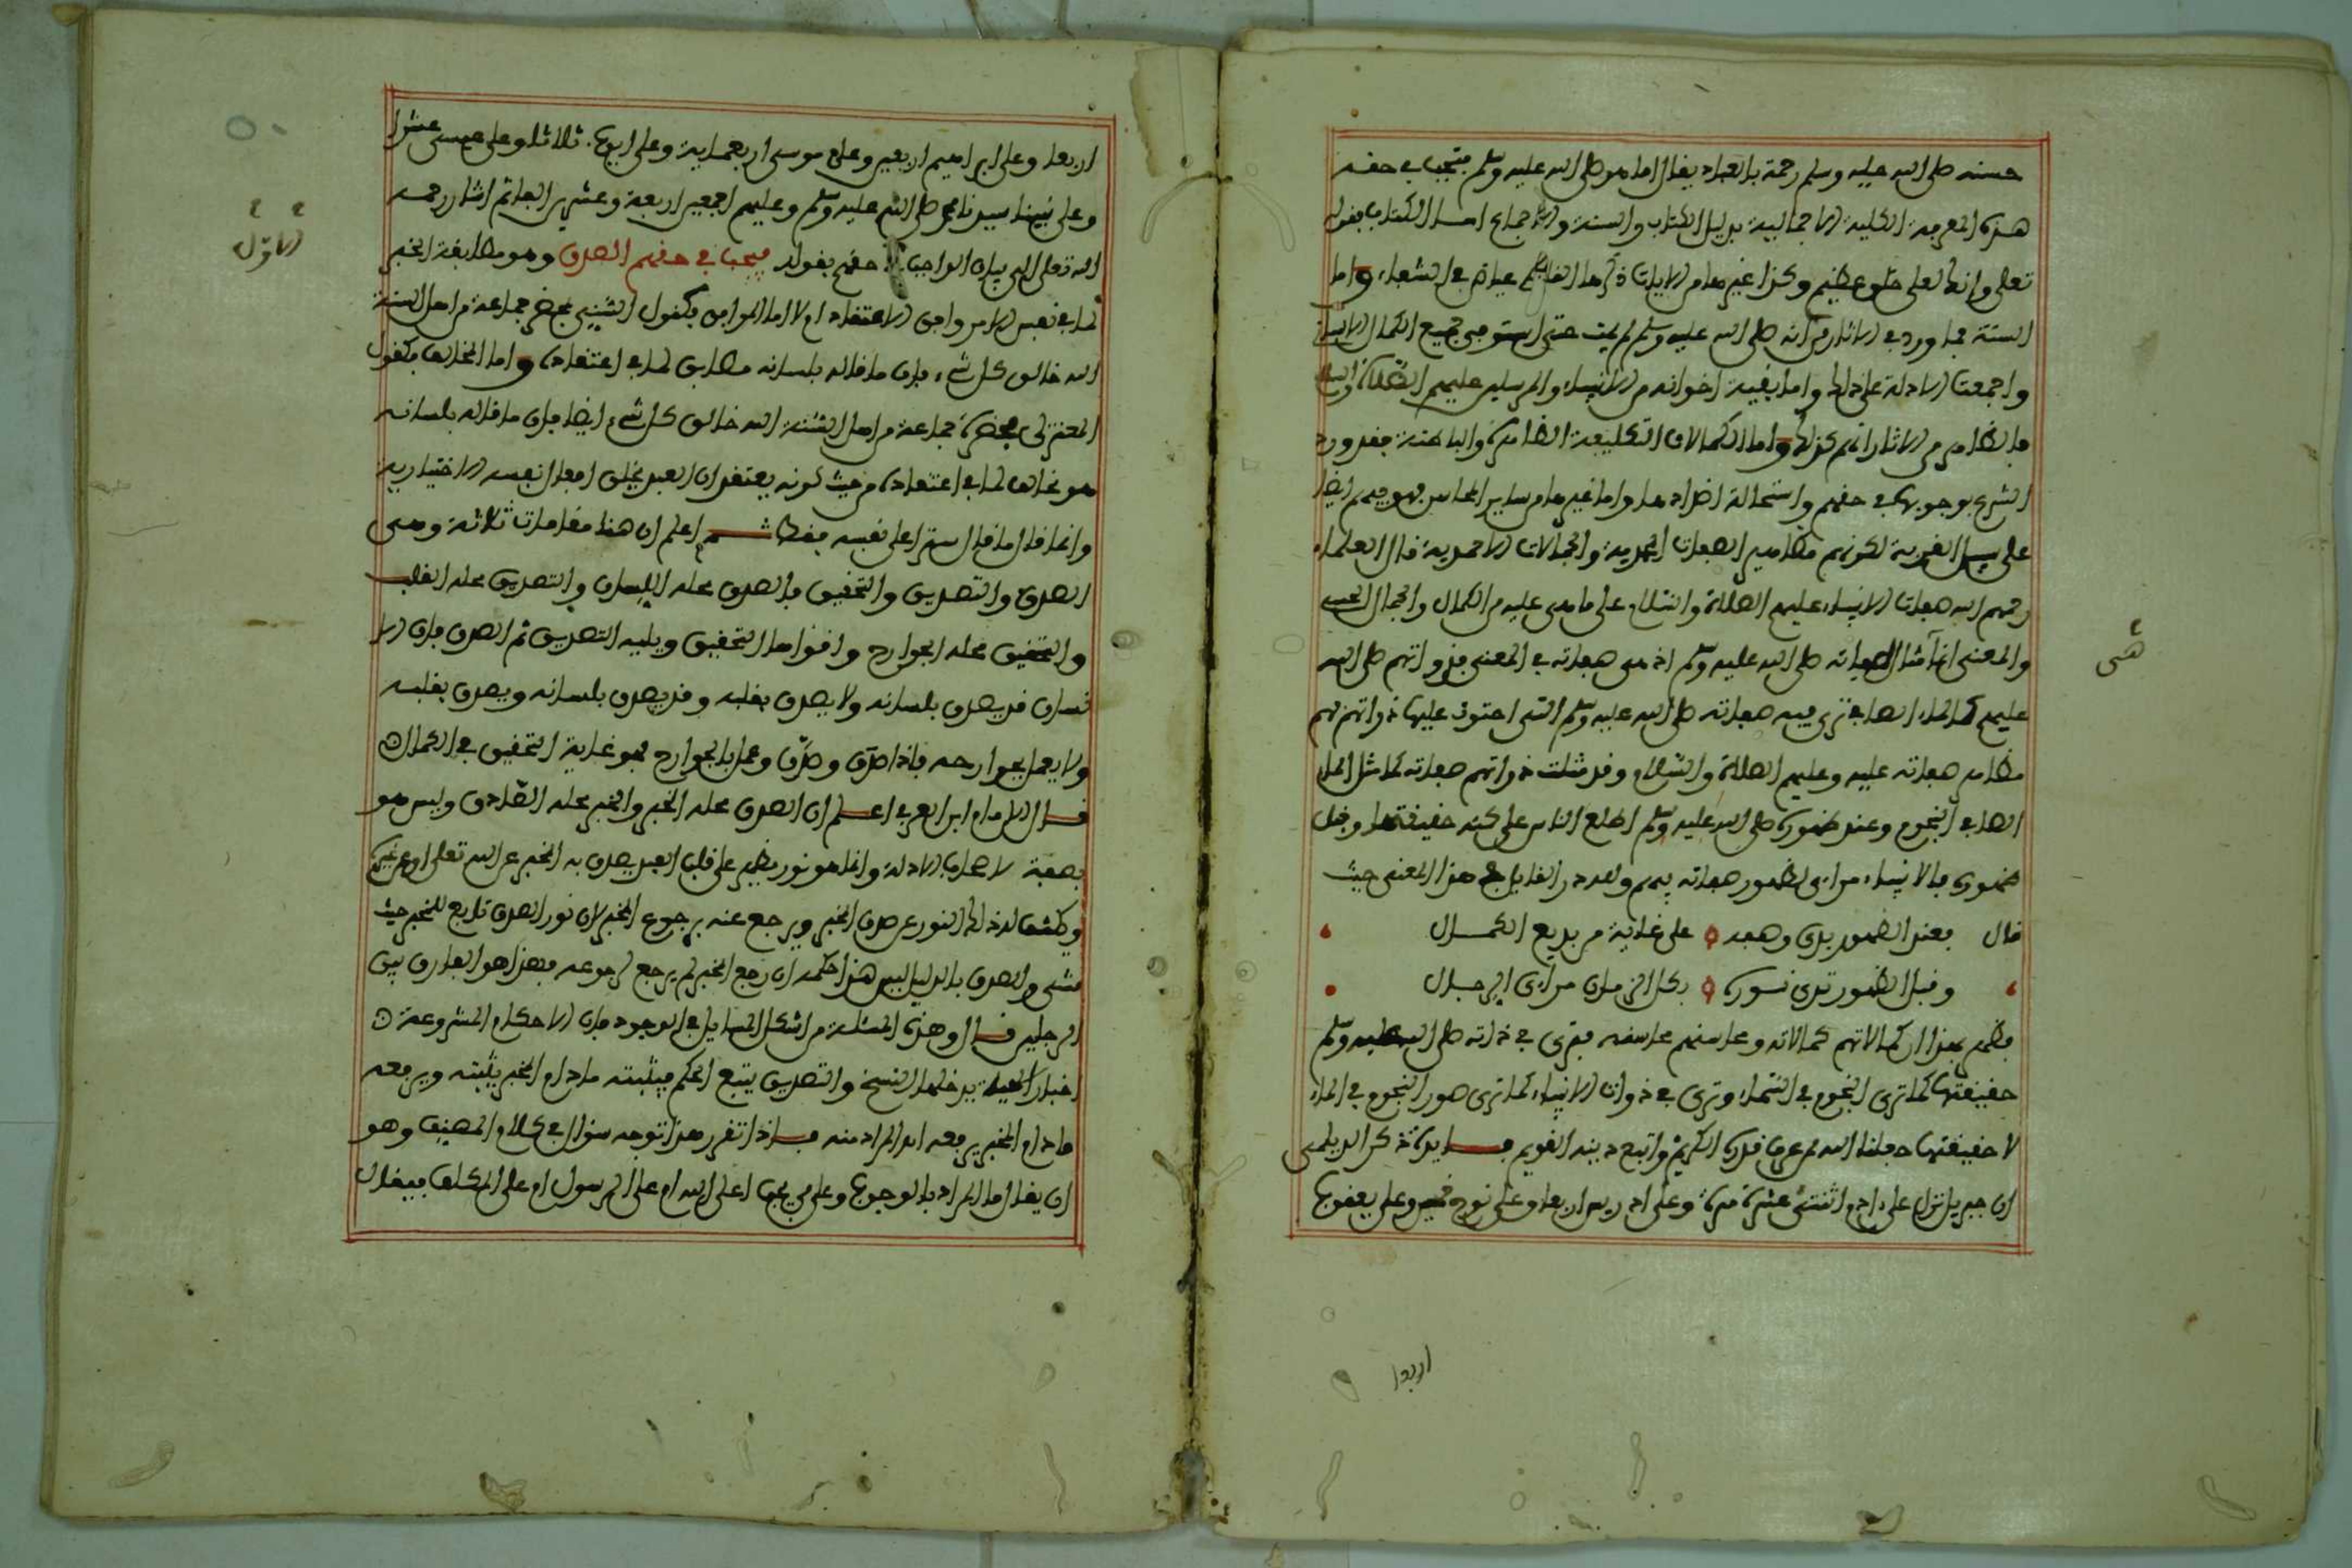 حسنه صلى الله عليه وسلم رحمة بالعباد يقال اما هو صلى الله عليه وسلم فتجب في حقه
هذه المعرفة الكلية الاجمالية بدليل الكتاب والسنة والاجماع اما الكتاب بقوله
تعلى وانك لعلى خلق عظيم وكذا غيرها من الايات ذكرها القاضي عياض في الشفاء واما
السنة فما ورد في الاثار من انه صلى الله عليه وسلم لم يمت حتى استوفى جميع الكمال الانساني
واجمعت الادلة على ذلك واما بقية اخوانه من الانبياء والمرسلين عليهم الصلاة والسلام
فالظاهر من الاثار انهم كذلك واما الكمالات التكليفية الظاهرة والباطنة فقد ورد
الشرع بوجوبها في حقهم واستحالة اضدادها واما غيرها من ساير المحاسن فهو فيهم ايضا
على سبيل الفرعية لكونهم مظاهر الصفات المحمدية والكمالات الاحمدية قال العلماء
رحمهم الله صفات الانبياء عليهم الصلاة والسلام على ما هى عليه من الكمال والجمال الحسى
والمعنى انها مثال لصفاته صلى الله عليه وسلم اذ هى صفاته في المعنى فذواتهم صلى الله
عليهم كالماء الصافي ترى فيه صفاته صلى الله عليه وسلم التى احتوت عليها ذواتهم فهم
مظاهر صفاته عليه وعليهم الصلاة والسلام وقد مثلت ذواتهم صفاته كما مثل الماء
الصافي النجوم وعند ظهوره صلى الله عليه وسلم اطلع الناس على كنه حقيقتها وقبل
ظهوره فالانبياء مراءى لظهور صفاته فيهم ولله در القايل في هذا المعنى حيث
قال بعند الظهور بدى وصفه على غاية من بديع الكمال
وقبل الظهور تدى نوره بكل الزمان مراءى الرجال
فظهر بهذا ان كمالاتهم كمالاته ومحاسنهم محاسنه فترى في ذاته صلى الله عليه وسلم
حقيقتها كما ترى النجوم في السماء وترى في ذوات الانبياء كما ترى صور النجوم في الماء
لا حقيقتها جعلنا الله ممن عرف قدره الكريم واتبع دينه القويم فايدة ذكر الديلمى
ان جبريل نزل على ءادم اثنتى عشرة مرة وعلى ادريس اربعا وعلى نوح خمسين وعلى يعقوب
اربعا
اربعا وعلى ابراهيم اربعين وعلى موسى اربعماية وعلى ايوب ثلاثا وعلى عيسى عشرا
وعلى نبينا سيدنا محمد صلى الله عليه وسلم وعليهم اجمعين اربعة وعشرين الفا ثم اشار رحمه
الله تعلى الى بيان الواجب في حقهم بقوله فيجب في حقهم الصدق وهو مطابقة الخبر
لما في نفس الامر وافق الاعتقاد ام لا اما الموافق كقول السنى بمحضر جماعة من اهل السنة
الله خالق كل شىء فان ما قاله بلسانه مطابق لما في اعتقاده واما المخالف كقول
المعتزلى بمحضر جماعة من اهل السنة الله خالق كل شىء ايضا فان ما قاله بلسانه
هو مخالف لما في اعتقاده من حيث كونه يعتقد ان العبد يخلق افعال نفسه الاختيارية
وانما قال ما قال سترا على نفسه فقط ثم اعلم ان هنا مقامات ثلاثة وهى
الصدق والتصديق والتحقيق فالصدق محله اللسان والتصديق محله القلب
والتحقيق محله الجوارح واقواها التحقيق ويليه التصديق ثم الصدق فان الا
نسان قد يصدق بلسانه ولا يصدق بقلبه وقد يصدق بلسانه ويصدق بقلبه
ولا يعمل بجوارحه فاذا صدق وصدّق وعمل بالجوارح فهو غاية التحقيق في الكمال
قال الامام ابن العربي اعلم ان الصدق محله الخبر والخبر محله الصادق وليس هو
بصفة لاصحاب الادلة وانما هو نور يظهر على قلب العبد يصدق به الخبر عن الله تعلى او عن غيره
ويكشف له ذلك النور عن صدق الخبر ويرجع عنه برجوع الخبر لان نور الصدق تابع للخبر حيث
مشى والصدق بالدليل ليس هذا حكمه ان رجع الخبر لم يرجع لرجوعه فهذا هو الفارق بين
الرجلين قال وهذه المسئلة من اشكل المسايل في الوجود فان الاحكام المشروعة
اخبار الهية يدخلها النسخ والتصديق يتبع الحكم فيثبته ما دام الخبر يثبته ويرفعه
ما دام الخبر يرفعه اهـ المراد منه فاذا تقرر هذا توجه سؤال في كلام المصنف وهو
ان يقال ما المراد بالوجوب وعلى من يجب اعلى الله ام على الرسول ام على المكلف فيقال
الاول